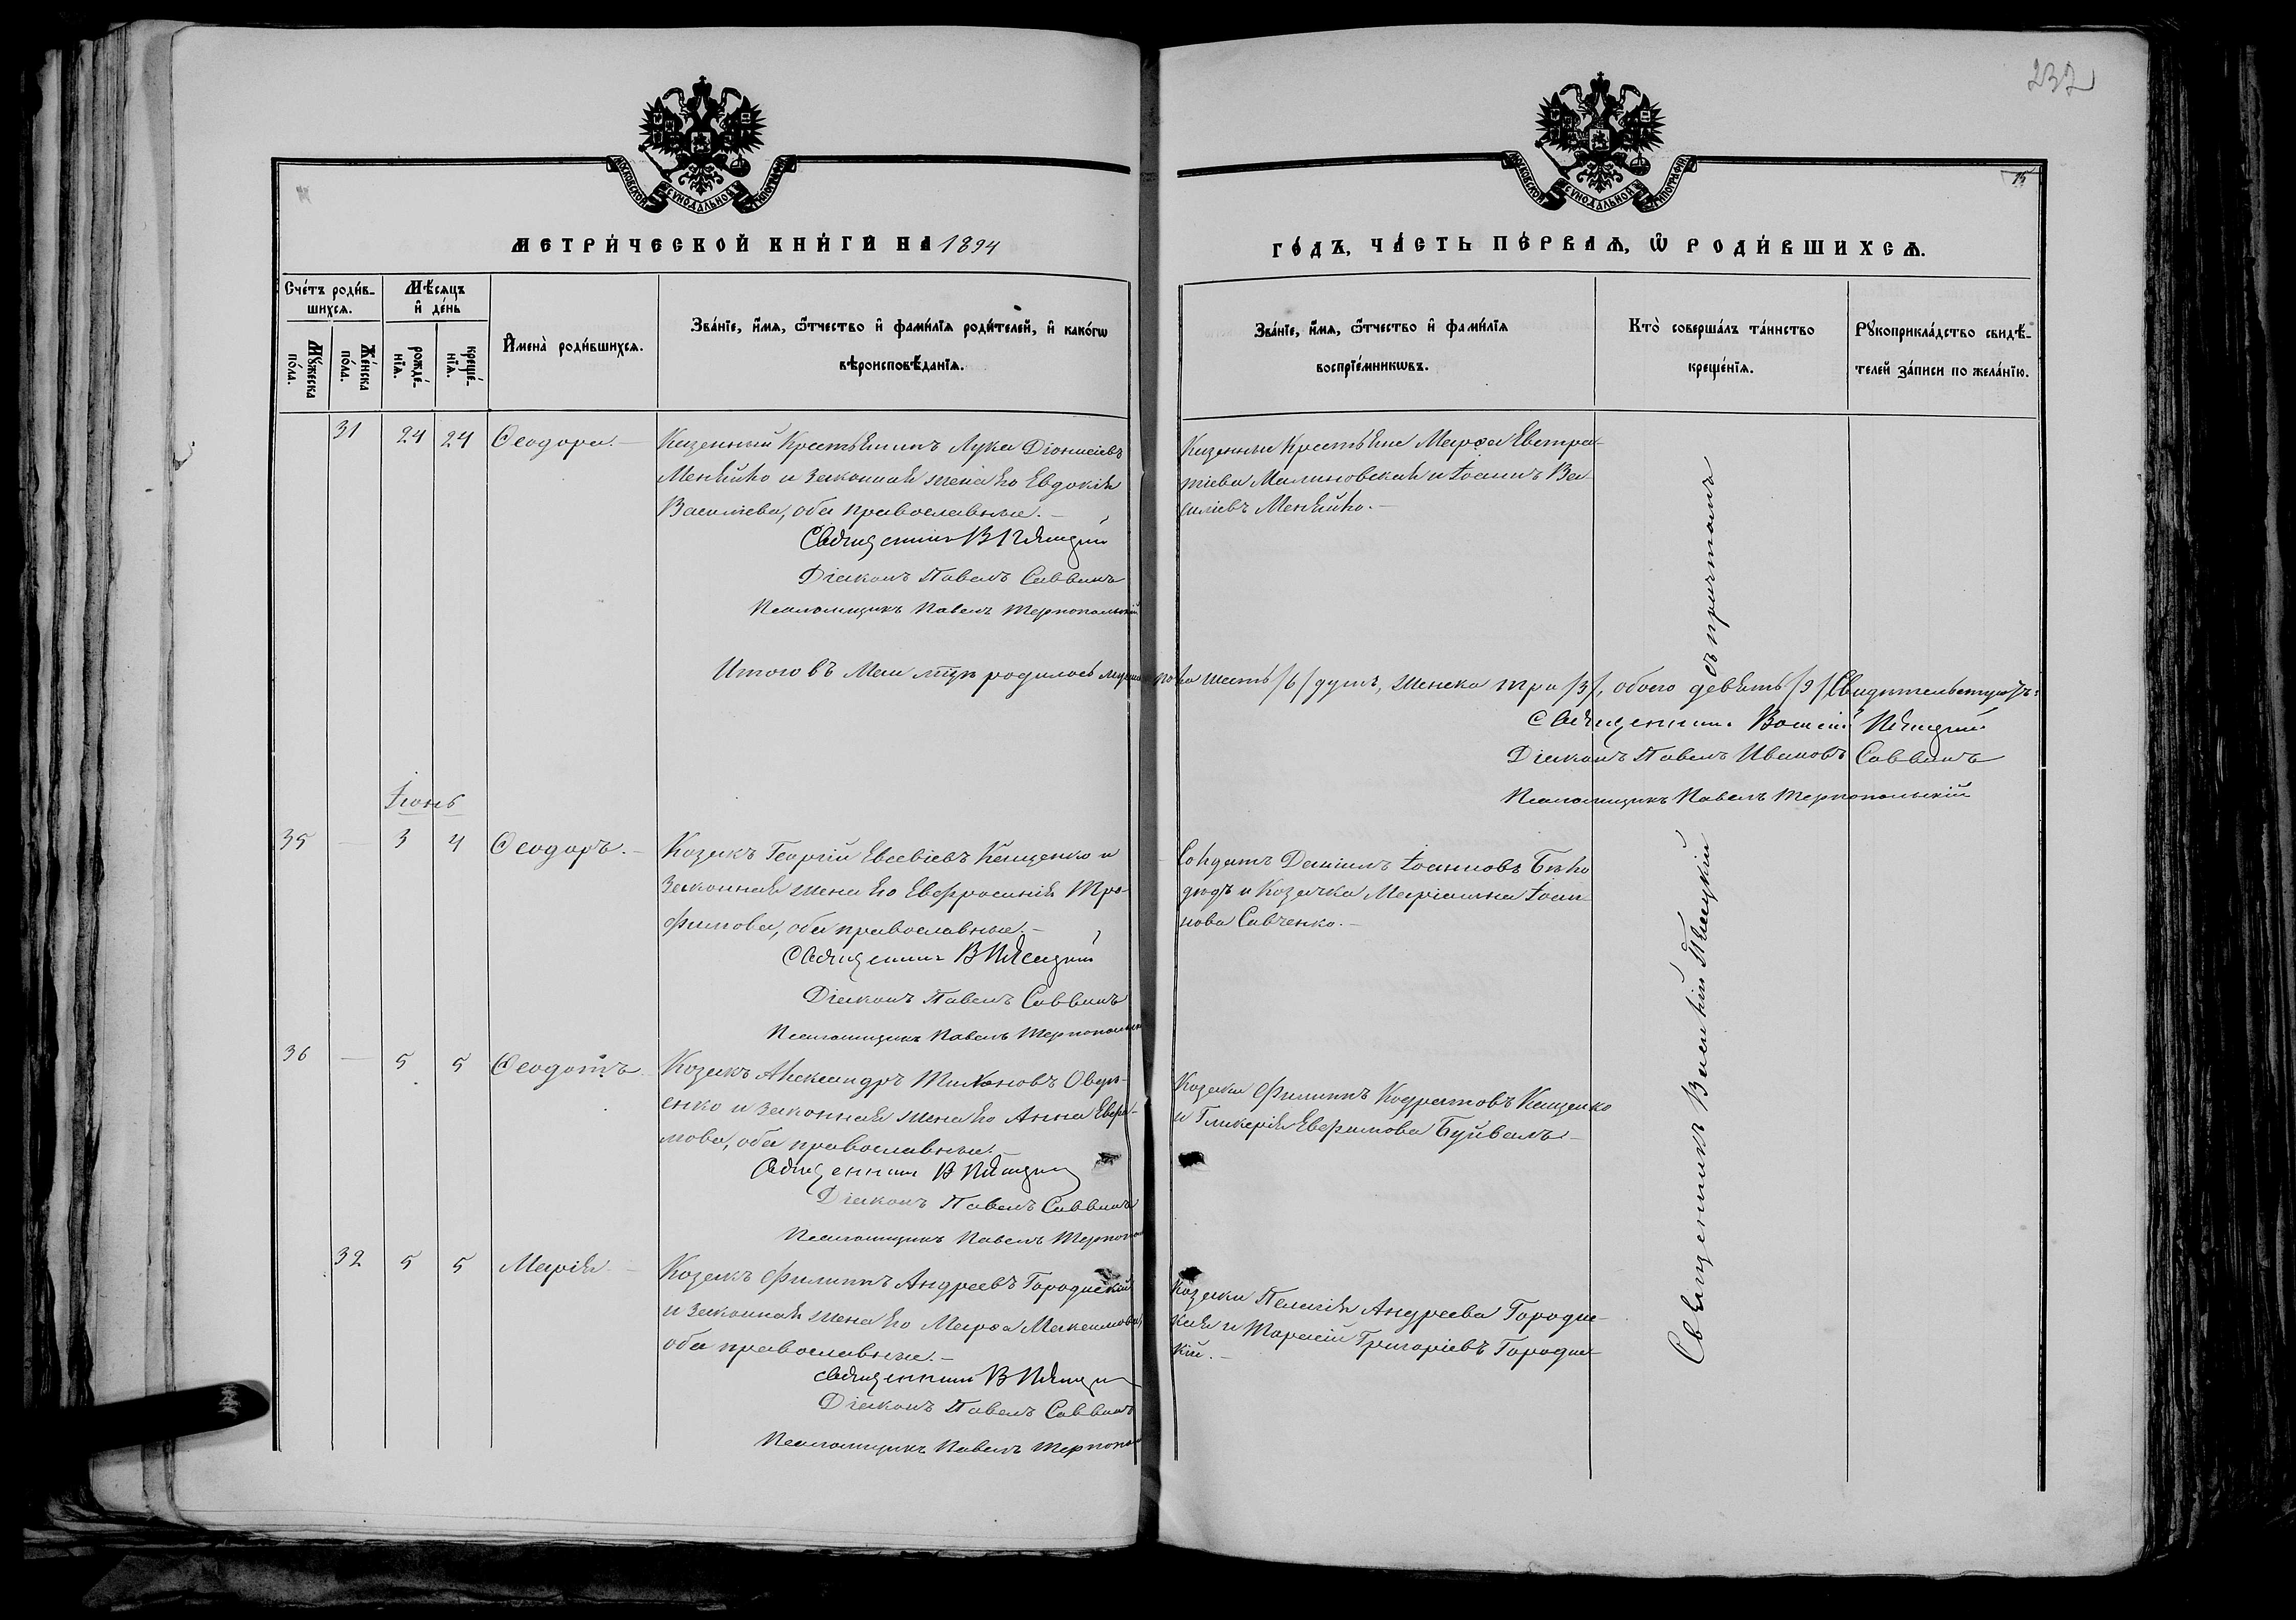 232
15
МОСКОВСКОЙ СѴНОДАЛЬНОЙ ТИПОГРАФІИ
МОСКОВСКОЙ СѴНОДАЛЬНОЙ ТИПОГРАФІИ
МЕТРИ́ЧЕСКОЙ КНИ́ГИ НА 1894
ГО́ДЪ, ЧА́СТЬ ПЕ́РВАѦ, Ѿ РОДИ́ВШИХСѦ.
Сче́тъ роди́в-
шихсѧ.
Мꙋ́жеска
по́ла.
Же́нска
по́ла.
Мѣ́сѧцъ
и҆ де́нь
рожде́-
нїѧ.
креще́-
нїѧ.
И҆мена̀ роди́вшихсѧ.
Зва́нїе, и҆́мѧ, ѻ҆́тчество и҆ фами́лїѧ роди́телей, и҆ како́гѡ
вѣроисповѣ́данїѧ.
Зва́нїе, и҆́мѧ, ѻ҆́тчество и҆ фами́лїѧ
воспрїе́мникѡвъ.
Кто̀ соверша́лъ та́инство
креще́нїѧ.
Рꙋкоприкла́дство свидѣ́-
телей за́писи по жела́нїю.
31 24 24 Ѳеодора.—
Казенный Крестьянинъ Лука Діонисіевъ
и законная жена его Евдокія
Василіева, оба православные.—
Священникъ В Пляцкій
Діаконъ Павелъ Саввинъ
Псаломщикъ Павелъ Тернопольскій
Казенные Крестьяне Марѳа Евстра-
тіева Малиновская и Іоаннъ Ва-
силіевъ
Итого въ Маи м-цѣ родилось мужеска пола шесть /6/ душъ, женска три /3/, обоего девять /9/ Свидѣтельствуютъ:
Священникъ Василій Пляцкій
Діаконъ Павелъ Ивановъ Саввинъ
Псаломщикъ Павелъ Тернопольскій
Іюнь
35 — 3 4 Ѳеодоръ.—
Козакъ Георгій Евсевіевъ Кащенко и
Законная жена его Евфросинія Тро-
фимова, оба православные.—
Священникъ В Пляцкій
Діаконъ Павелъ Саввинъ
Псаломщикъ Павелъ Тернопольскій
Солдатъ Даніилъ Іоанновъ Бѣло
дюдъ и Козачка Маріанна Іоан-
нова Савченко.—
36 — 5 5 Ѳеодотъ
Козакъ Александръ Тихоновъ
енко и законная жена его Анна Евфи-
мова, оба православные.
Священникъ В Пляцкій
Діаконъ Павелъ Саввинъ
Псаломщикъ Павелъ Тернопол
Козаки Филиппъ Кодратовъ Кащенко
и Гликерія Евфимова Буйвалъ.—
32 5 5 Марія.—
Козакъ Филиппъ Андреевъ Городискій
и законная жена его Марѳа Максимова,
оба православные.—
Священникъ В Пляцкій
Діаконъ Павелъ Саввинъ
Псаломщикъ Павелъ Тернопол
Козаки Пелагія Андреева Городис-
кая и Тарасій Григоріевъ Городис-
кій.—
Священникъ Василій Пляцкій
съ причтомъ